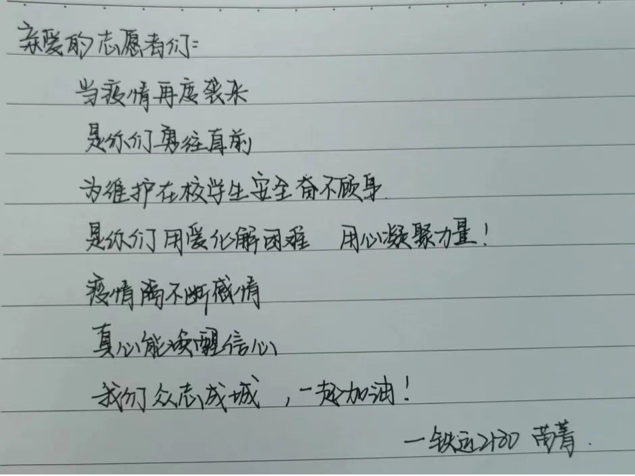 亲爱的志愿者们:
当疫情再度袭来
是你们勇往直前
为维护在校学生安全奋不顾身
是你们用爱化解困难 用心凝聚力量!
疫情离不断感情
真心能唤醒信心
我们众志成城,一起加油!
一铁运2130 苗菁